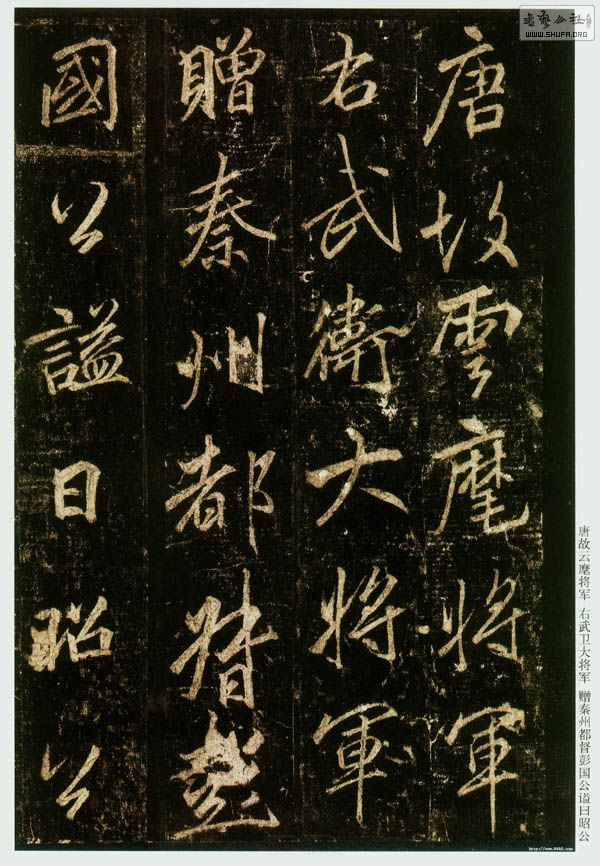 唐故雲麾將軍
右武衛大將軍
贈秦州都督彭
國公謚曰昭公
唐故云麾将军 右武卫大将军 赠秦州都督彭国公谥曰昭公
书艺公社
WWW.SHUFA.ORG